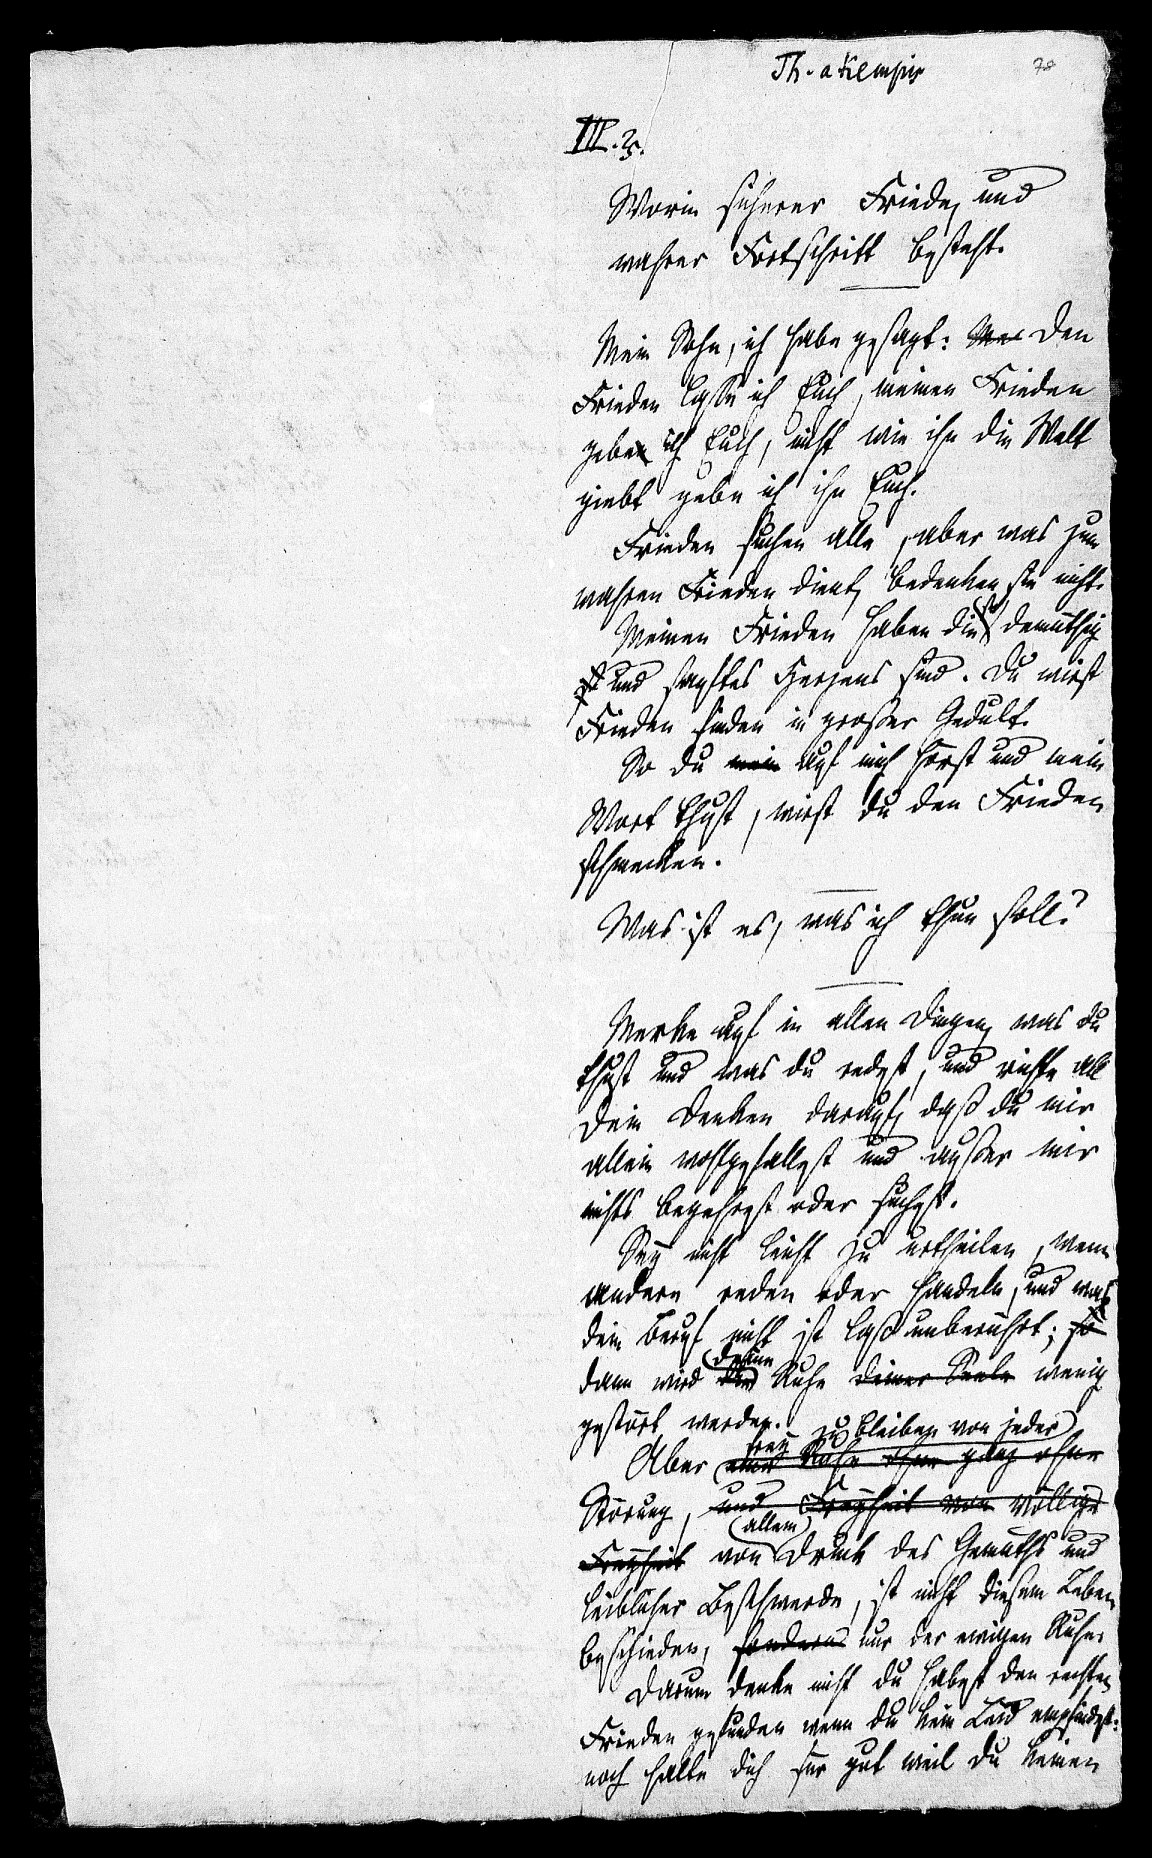 Th. a Kempis
70
III. 25.
Worin sicherer Friede, und
wahrer Fortschritt besteht.
Mein Sohn, ich habe gesagt: Me Den
Frieden lasse ich Euch, meinen Frieden
geben ich Euch, nicht wie ihn die Welt
giebt gebe ich ihn Euch.
Frieden suchen alle, aber was zum
wahren Frieden dient, bedenken sie nicht.
Meinen Frieden haben die, so demüthig
und sanftes Herzens sind. Du wirst
Frieden finden in großer Gedult.
So du mein auf mich hörst und mein
Wort thust, wirst du den Frieden
schmecken.
Was ist es, was ich thun soll?
Merke auf in allen Dingen, was du
thust und was du redest, und richte all
Dein Denken darauf, daß du mir
allein wohlgefallest und außer mir
nichts begehrest oder suchest.
Sey nicht leicht zu urtheilen, wenn
andere reden oder handeln, und was
dein Beruf nicht ist laß unberührt; so
deine
dann wird die Ruhe deiner Seele wenig
gestört werden.
frey zu bleiben von jeder
Aber eine Ruhe ohne ganz ohne
Störung, und Freyheit von völlige
allem
Freyheit von Druck des Gemüths und
leiblicher Beschwerde, ist nicht diesem Leben
beschieden, sondern nur der ewigen Ruhe.
Darum denke nicht du habest den rechten
Frieden gefunden wenn du kein Leid empfindest:
noch halte dich für gut weil du keinen